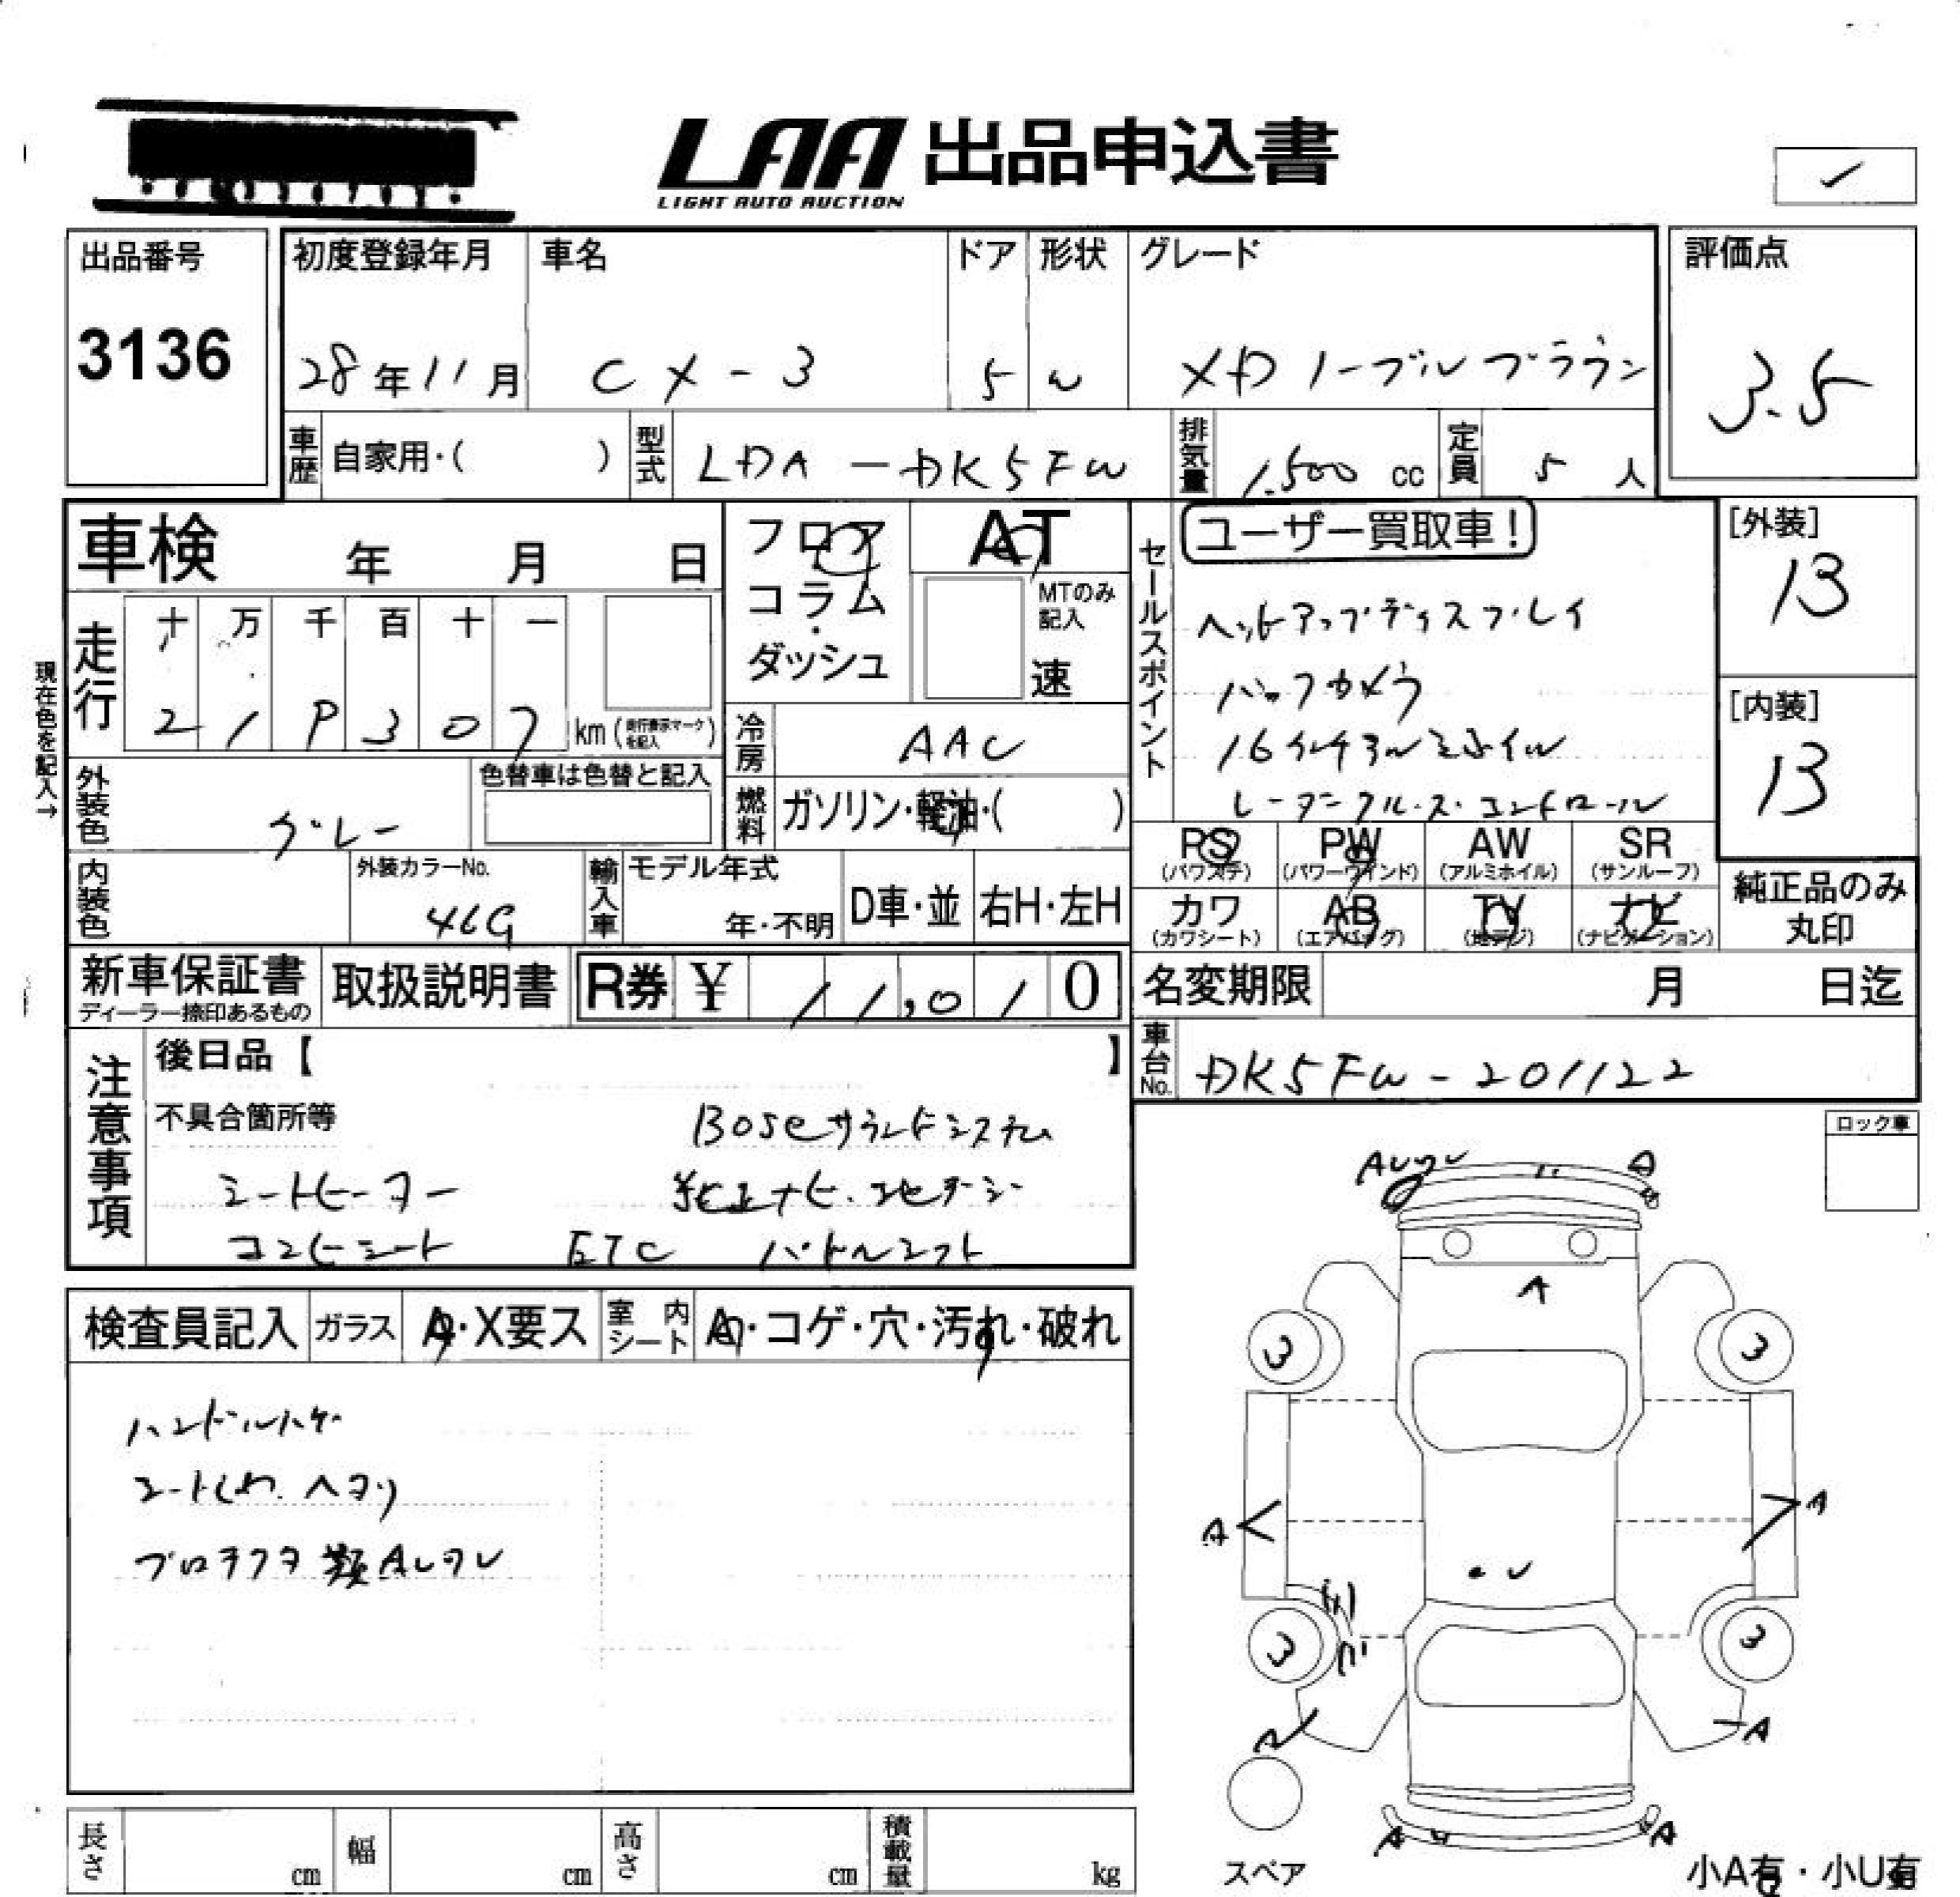 LAA 出品申込書
LIGHT AUTO AUCTION
✓
出品番号
3136
初度登録年月
28年11月
車名
CX-3
ドア
5
形状
W
グレード
XD ノーブルブラウン
評価点
3.5
車歴 自家用・( )
型式 LDA-DK5FW
排気量 1.500 cc
定員 5 人
車検 年 月 日
フロア
コラム・
ダッシュ
AT
MTのみ記入
速
セールスポイント
ユーザー買取車!
ヘッドアップディスプレイ
バックカメラ
16インチアルミホイル
レーダークルーズ・コントロール
[外装]
13
[内装]
13
現在色を記入→
走行
十 万 千 百 十 一
2 1 9 3 0 7 km (走行表示マークを記入)
冷房 AAC
外装色 グレー
色替車は色替と記入
燃料 ガソリン・軽油・( )
PS (パワステ)
PW (パワーウインド)
AW (アルミホイル)
SR (サンルーフ)
内装色
外装カラーNo.
46G
輸入車
モデル年式
年・不明
D車・並
右H・左H
カワ (カワシート)
AB (エアバッグ)
TV (地デジ)
ナビ (ナビゲーション)
純正品のみ
丸印
新車保証書
ディーラー捺印あるもの
取扱説明書
R券 ¥ 11,010
名変期限 月 日迄
車台No. DK5FW-201122
注意事項
後日品【 】
不具合箇所等
BOSEサウンドシステム
シートヒーター
純正ナビ・フルセグ
コンビシート ETC パドルシフト
ロック車
検査員記入
ガラス A・X要ス
室内シート A・コゲ・穴・汚れ・破れ
ハンドルハゲ
シートしわ・ヘタリ
プロテクタ類Aしアレ
A
A
A
3
3
A
A
3
3
A
A
A
スペア
長さ cm
幅 cm
高さ cm
積載量 kg
小A有・小U有